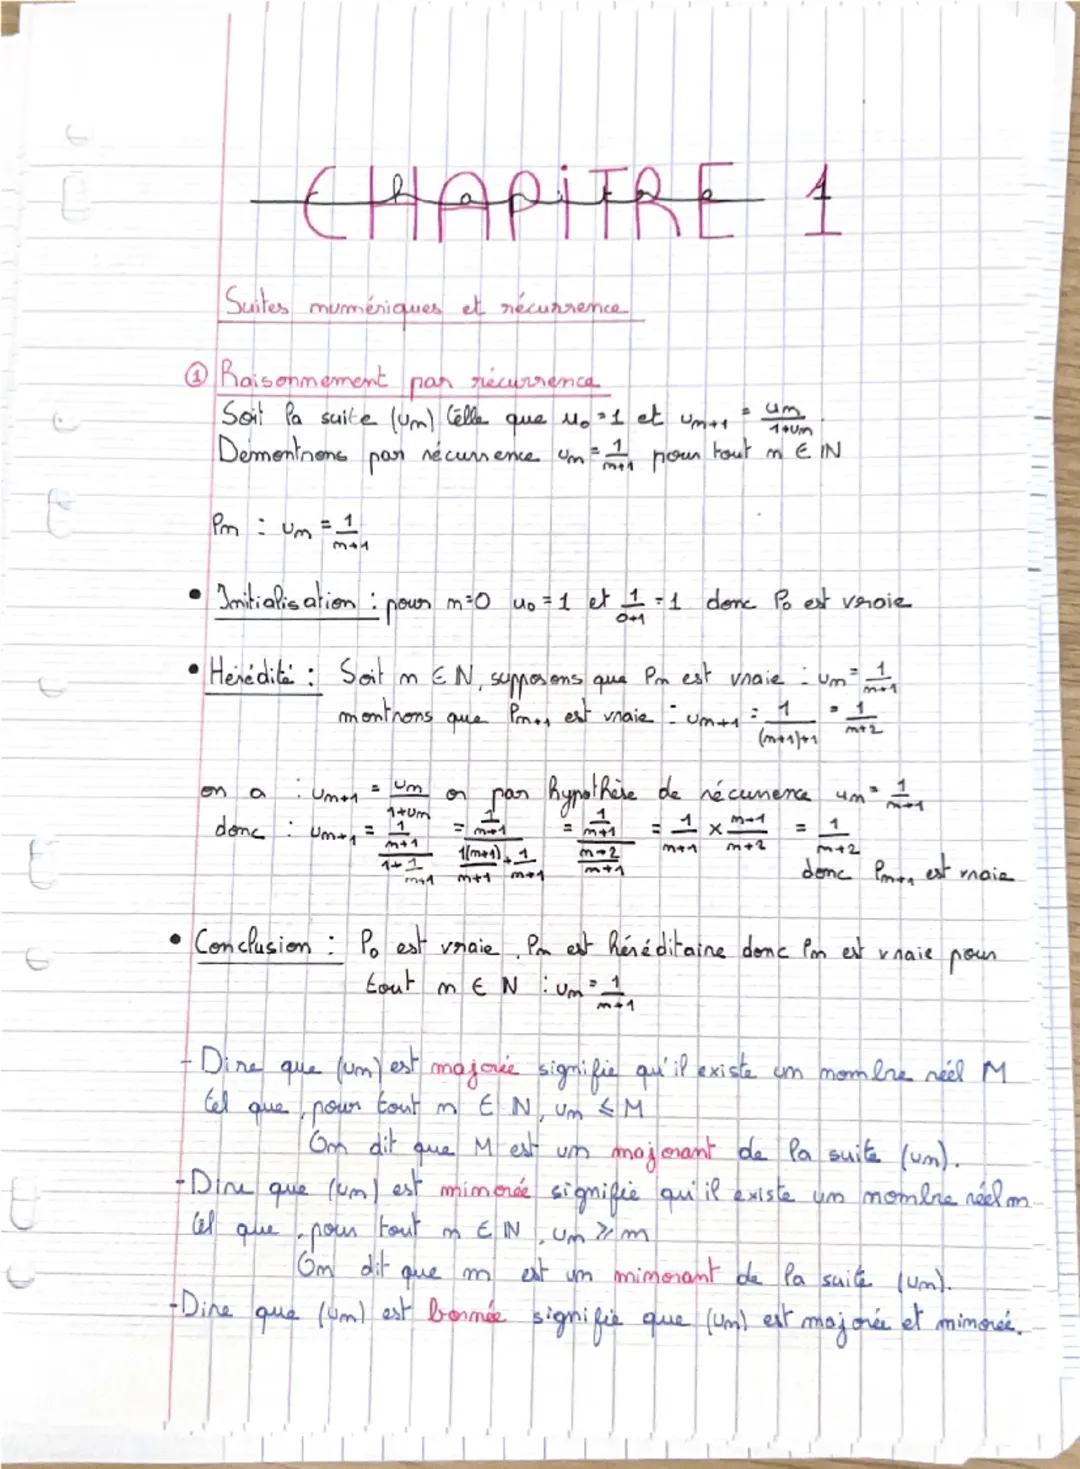 CHAPITRE 1
Suites numériques et récurrence
① Raisonnement par récurrence
Soit la suite (un) telle que u₀ = 1 et un+1 = un/(1+un)
Démontrons par récurrence un = 1/(n+1) pour tout n ∈ ℕ
Pn : un = 1/(n+1)
• Initialisation : pour n=0 u₀ = 1 et 1/(0+1) = 1 donc P₀ est vraie
• Hérédité : Soit n ∈ N, supposons que Pn est vraie : un = 1/(n+1)
montrons que Pn+1 est vraie : un+1 = 1/((n+1)+1) = 1/(n+2)
on a : un+1 = un/(1+un) or par hypothèse de récurrence un = 1/(n+1)
donc : un+1 = (1/(n+1))/(1+1/(n+1)) = (1/(n+1))/(1(n+1)/(n+1) + 1/(n+1)) = (1/(n+1))/((n+2)/(n+1)) = 1/(n+1) × (n+1)/(n+2) = 1/(n+2)
donc Pn+1 est vraie
• Conclusion : P₀ est vraie, Pn est héréditaire donc Pn est vraie pour
tout n ∈ N : un = 1/(n+1)
- Dire que (un) est majorée signifie qu'il existe un nombre réel M
tel que, pour tout n ∈ N, un ⩽ M
On dit que M est un majorant de la suite (un).
- Dire que (un) est minorée signifie qu'il existe un nombre réel m
tel que, pour tout n ∈ ℕ, un ⩾ m
On dit que m est un minorant de la suite (un).
- Dire que (un) est bornée signifie que (un) est majorée et minorée.